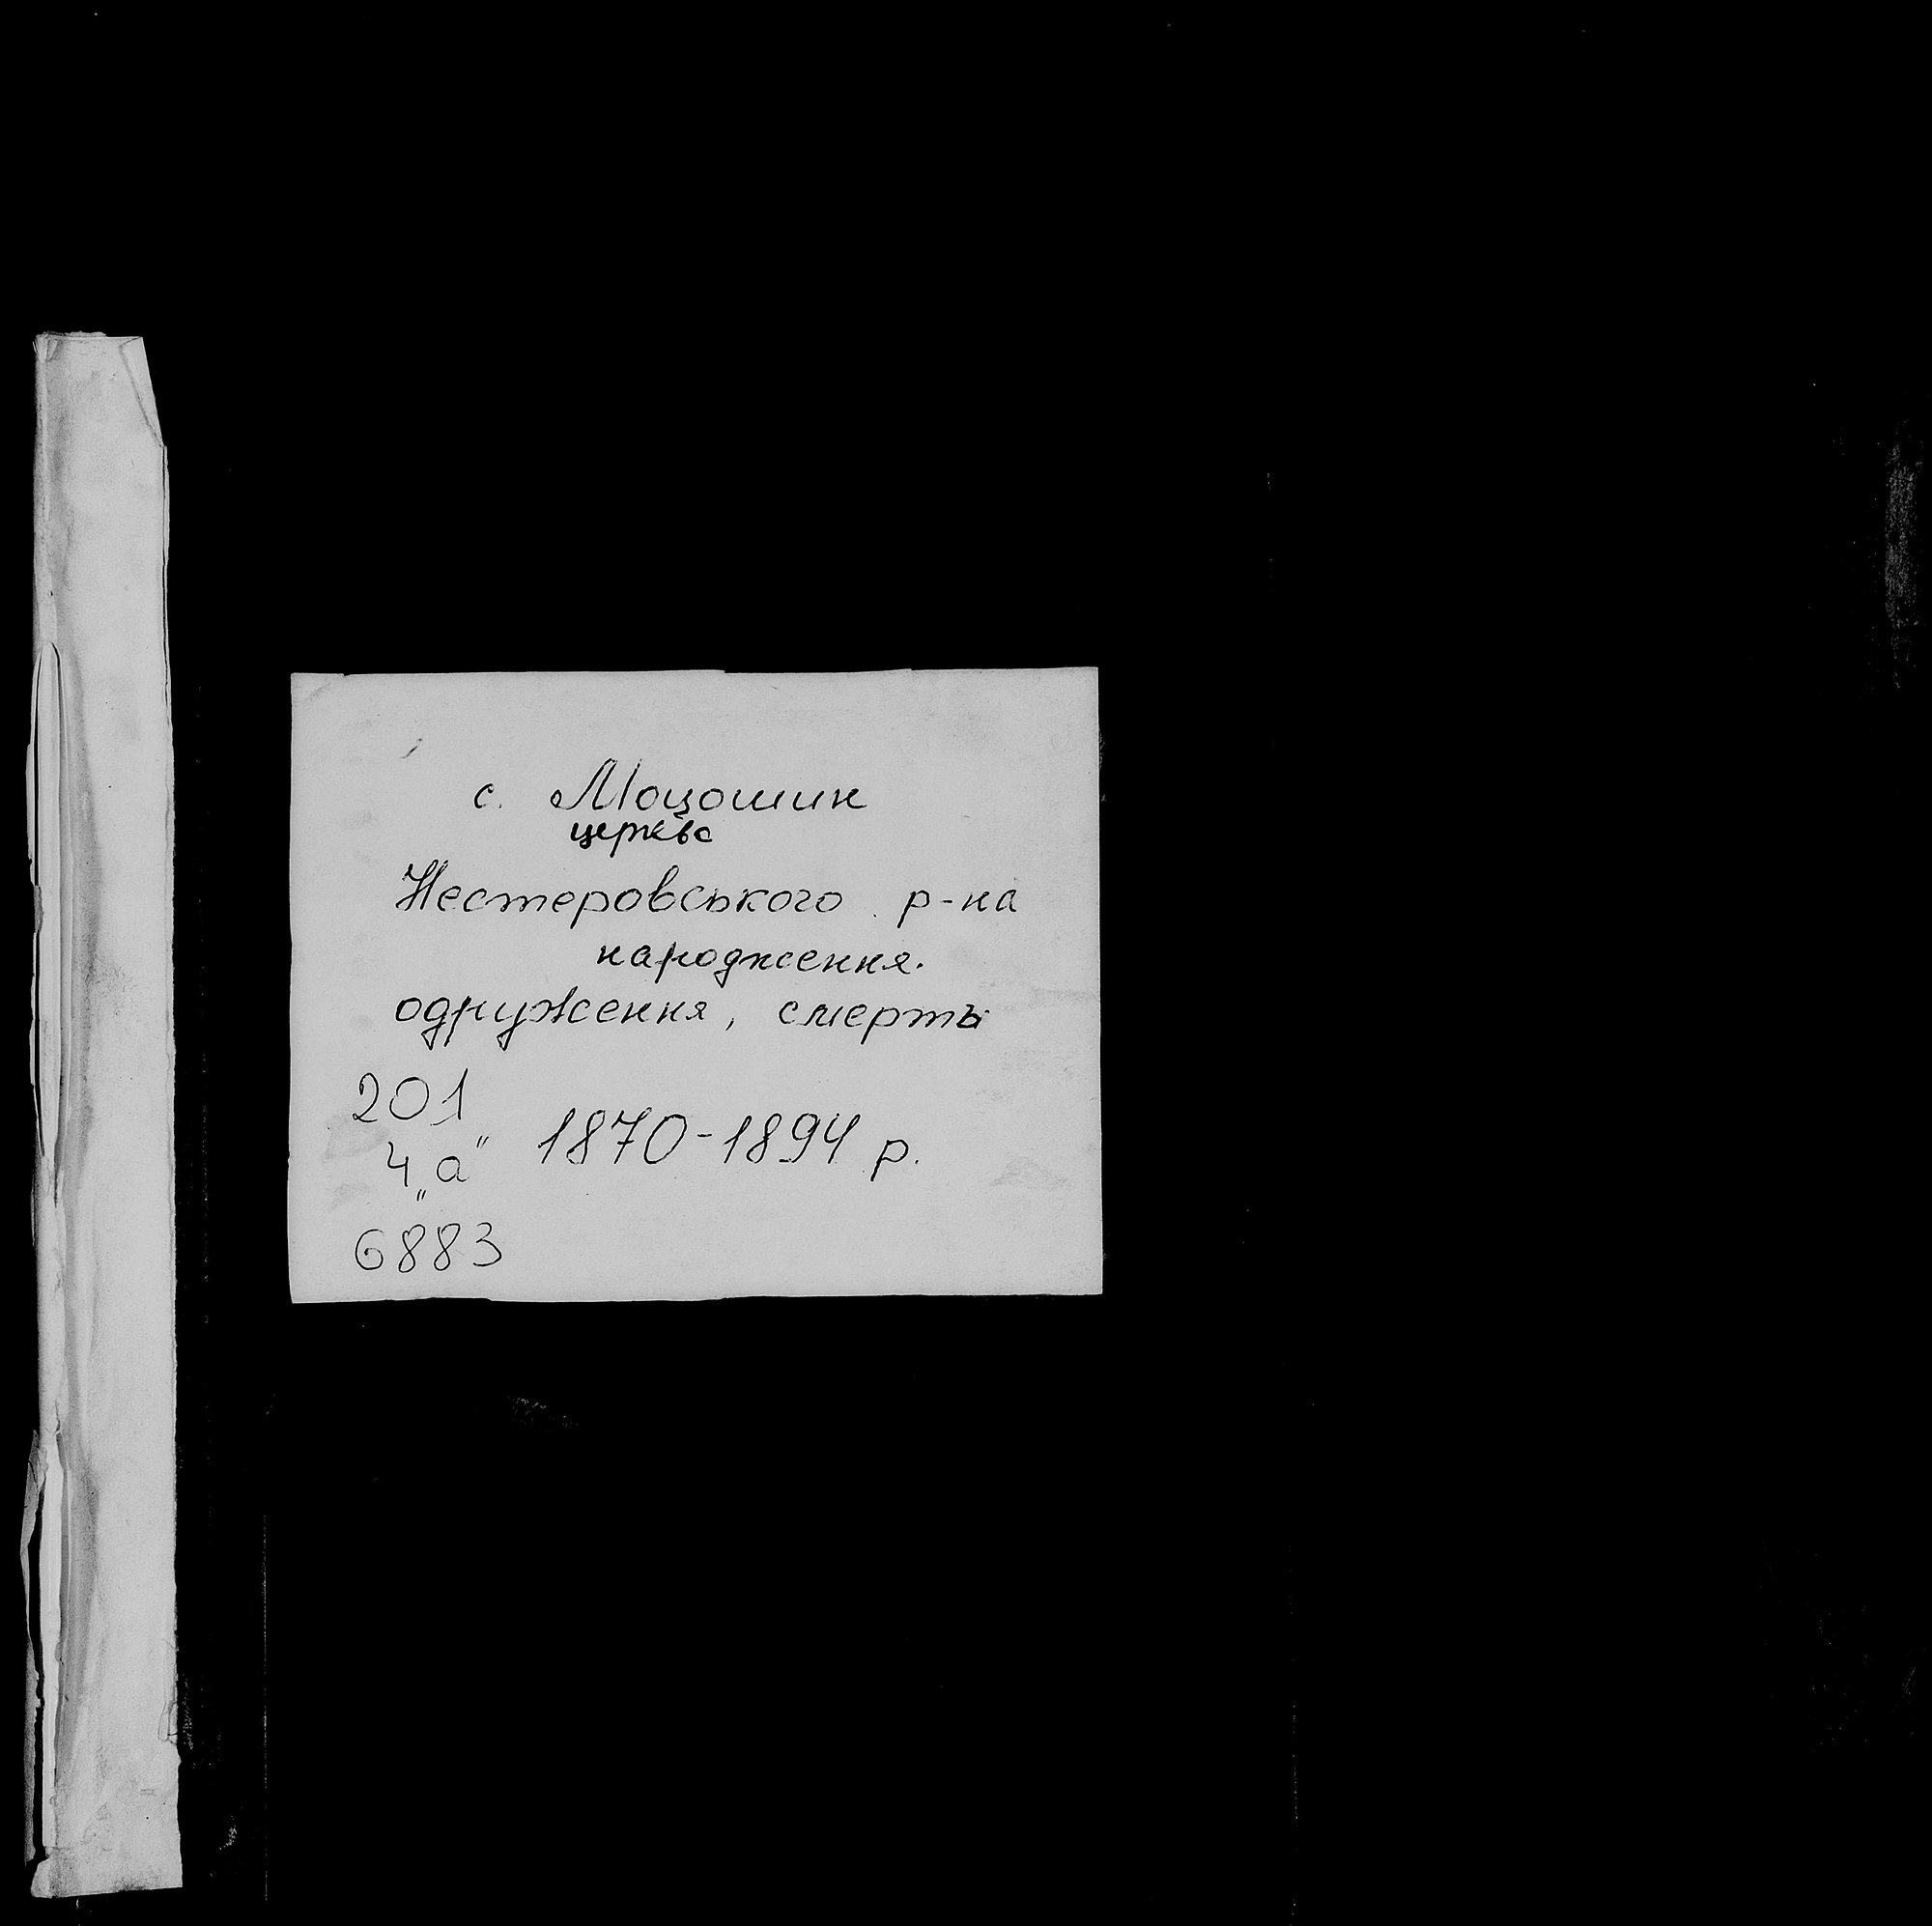 с. Моцошин
церква
Нестеровського р-на
народження.
одруження, смерть
201
4 „а" 1870-1894 р.
6883